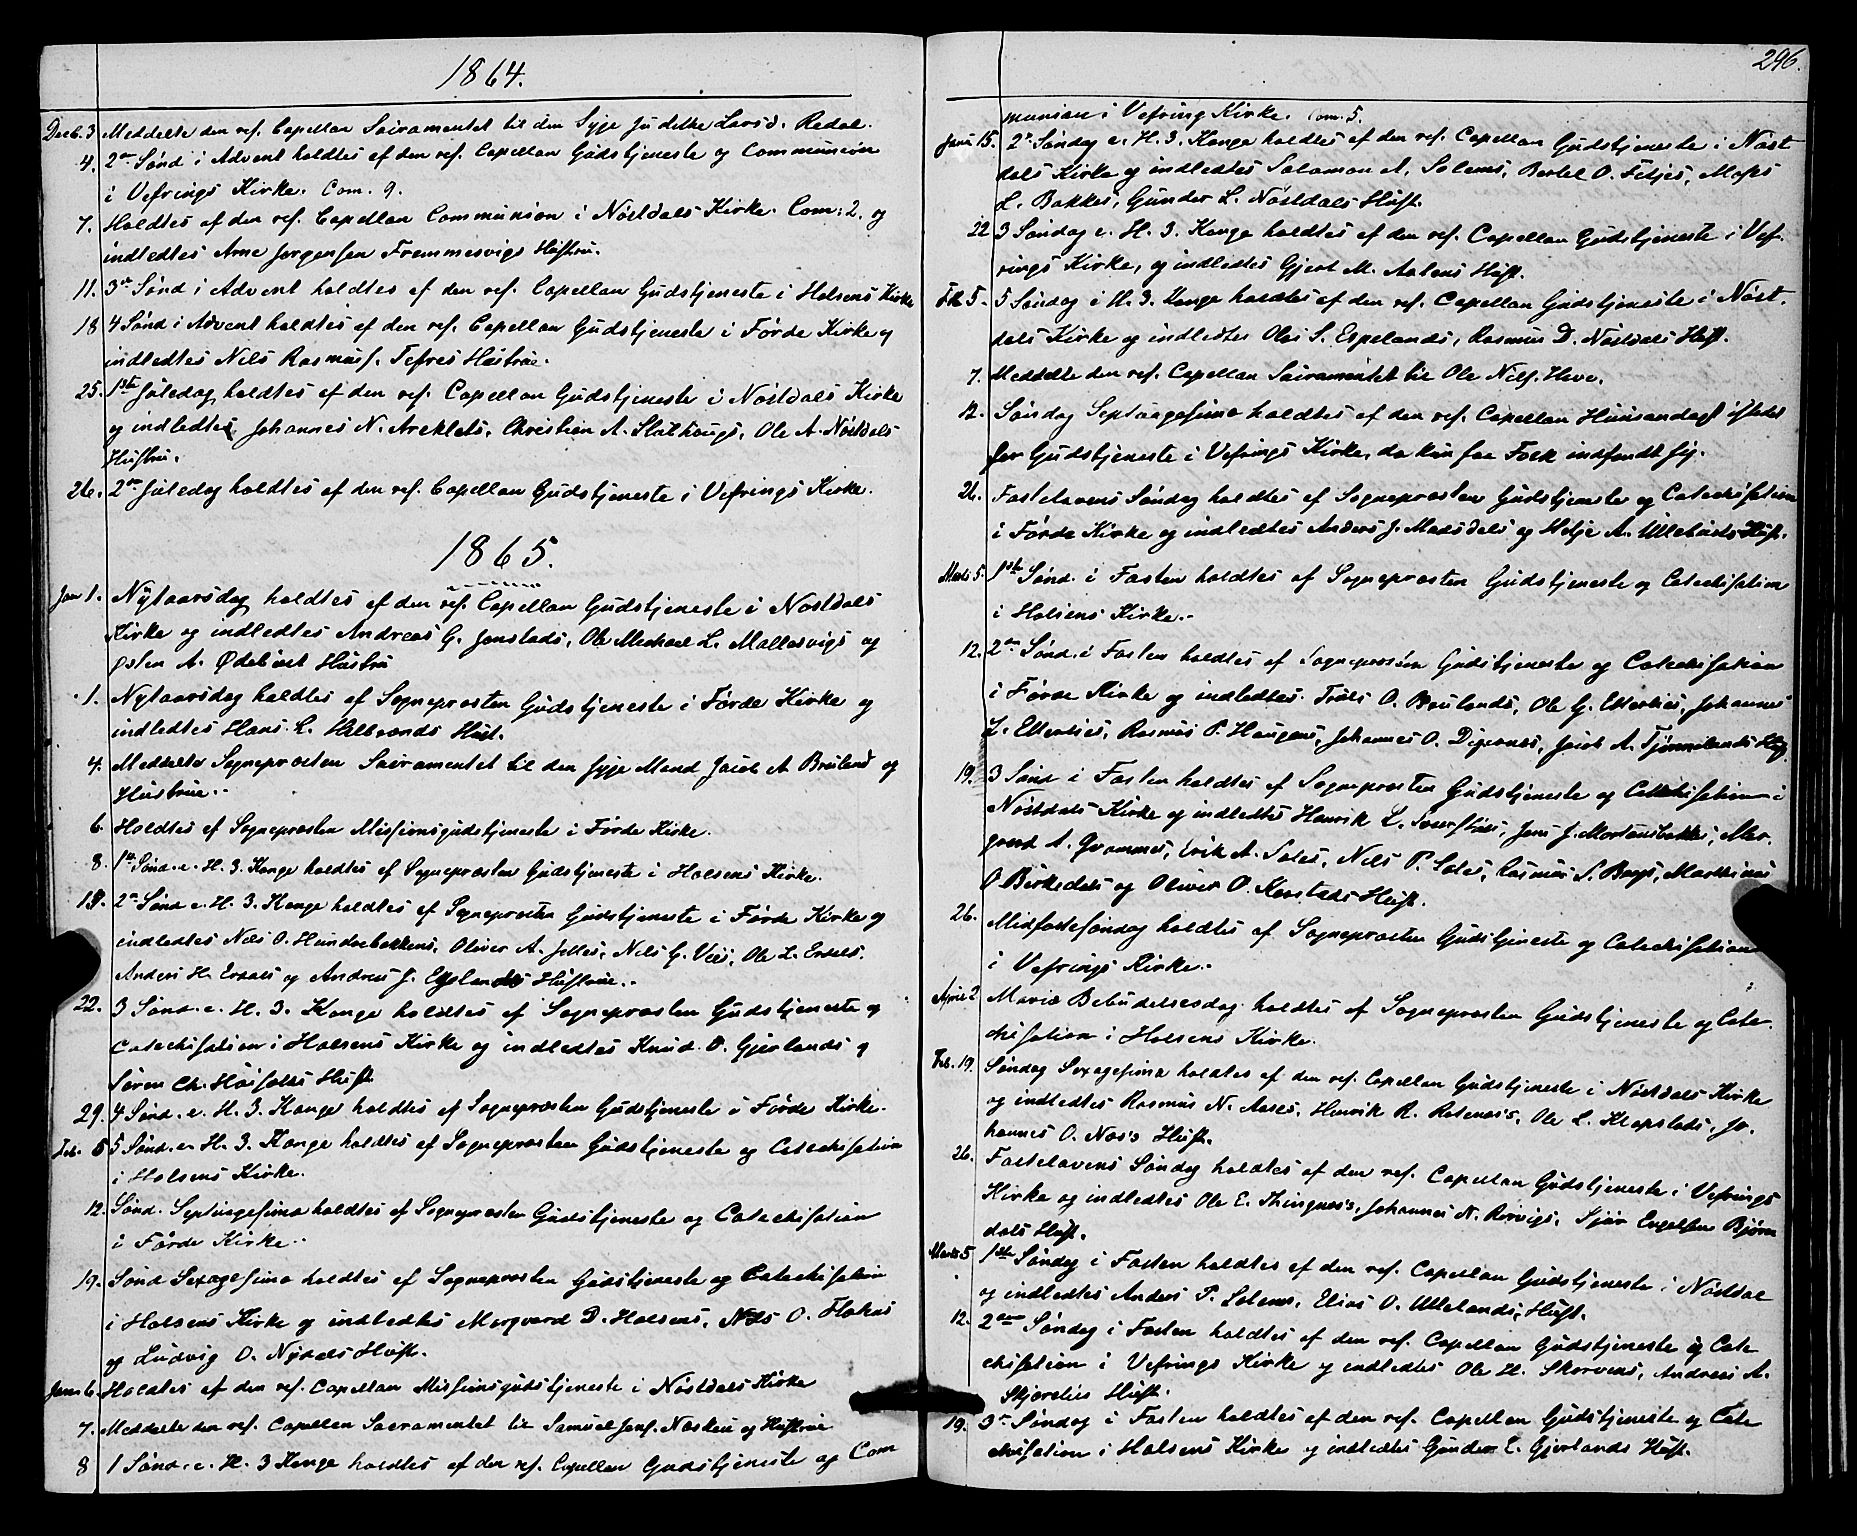 1864.
Decb. 3 Meddelte den ref. Capellan Sacramentet til den Syge Judithe Larsd. Redal.
4. 2den Sønd i Advent holdtes af den ref. Capellan Gudstjeneste og Communion
i Vefrings Kirke. Com. 9.
7. Holdtes af den ref. Capellan Communion i Nøstdals Kirke. Com: 2. og
indledtes Arne Jørgensen Fremmesvigs Hustru.
11. 3die Sønd i Advent holdtes af den ref. Capellan Gudstjeneste i Holsens Kirke
18 4 Sønd i Advent holdtes af den ref. Capellan Gudstjeneste i Førde Kirke og
indledtes Nils Rasmusf. Tefres Hustrue.
25. 1ste Juledag holdtes af den ref. Capellan Gudstjeneste i Nøstdals Kirke
og indledtes Johannes N. Areklets, Christian A. Slathougs, Ole A. Nøstdals
Hustru.
26. 2den Juledag holdtes af den ref. Capellan Gudstjeneste i Vefrings Kirke.
1865.
Jan 1. Nytaarsdag holdtes af den ref. Capellan Gudstjeneste i Nøstdals
Kirke og indledtes Andreas G. Jonstads, Ole Michael L. Mallasvigs og
Østen A. Ødebøet Hustru
1. Nytaarsdag holdtes af Sognepresten Gudstjeneste i Førde Kirke og
indledtes Hans L. Halbrands Hust.
4. Meddelte Sognepresten Sacramentet til den syge Mand Jacob A Bruland og
Hustrue.
6 Holdtes af Sognepresten Missionsgudstjeneste i Førde Kirke.
8. 1ste Sønd. e. H. 3. Konge holdtes af Sognepresten Gudstjeneste i Holsens Kirke.
15. 2den Sønd e. H. 3. Konge holdtes af Sognepresten Gudstjeneste i Førde Kirke og
indledtes Nils O. Hundvebakkens, Oliver A. Jelles, Nils G. Vies, Ole L. Erdals,
Anders H. Erdals og Andreas J. Espelands Hustrue.
22. 3 Sønd. e. H. 3. Konge holdtes af Sognepresten Gudstjeneste og
Catechisation i Holsens Kirke og indledtes Knud O. Gjerlands og
Søren Ch. Høifolds Hust
29. 4 Sønd. e. H. 3. Konge holdtes af Sognepresten Gudstjeneste i Førde Kirke.
Feb. 5 5 Sønd. e. H. 3. Konge holdtes af Sognepresten Gudstjeneste og Catechisation
i Holsens Kirke.
12. Sønd. Septuagesima holdtes af Sognepresten Gudstjeneste og Catechisation
i Førde Kirke.
19. Sønd Sexagesima holdtes af Sognepresten Gudstjeneste og Catechisation
i Holsens Kirke og indledtes Margvard D. Holsens, Nils O. Flokas
og Ludvig O. Nydals Hust.
Janr 6. Holdtes af den ref. Capellan Missionsgudstjeneste i Nøstdals Kirke
7. Meddelte den ref. Capellan Sacramentet til Samuel Jens. Naskeu og Hustrue
8 1 Sønd. e. H. 3 Konge holdtes af den ref. Capellan Gudstjeneste og Com
296.
munion i Vefring Kirke. Com. 5.
Janr 15. 2den Søndag e. H. 3. Konge holdtes af den ref. Capellan Gudstjeneste i Nøst
dals Kirke og indledtes Salamon A. Solems, Bertel O. Fitjes, Moses
L. Bakkes, Gunder L. Nøstdals Hust.
22 3 Søndag e. H. 3. Konge holdtes af den ref. Capellan Gudstjeneste i Vef-
rings Kirke, og indledtes Gjert M. Aalens Hust.
Feb 5. 5 Søndag i H. 3. Konge holdtes af den ref. Capellan Gudstjeneste i Nøst.
dals Kirke og indledtes Olai S. Espelands, Rasmus D. Nøstdals Hust.
7. Meddelte den ref. Capellan Sacramentet til Ole Nils. Heve.
12. Søndag Septuagesima holdtes af den ref. Capellan Huusandagt istedet
for Gudstjeneste i Vefrings Kirke, da kun faa Folk indfandt sig.
26. Fastelavens Søndag holdtes af Sognepresten Gudstjeneste og Catechisation
i Førde Kirke og indledtes Anders J. Maasdals og Helje A. Ullebusts Hust.
Marts 5. 1ste Sønd. i Fasten holdtes af Sognepresten Gudstjeneste og Catechisation
i Holsens Kirke.
12. 2den Sønd. i Fasten holdtes af Sognepresten Gudstjeneste og Catechisation
i Førde Kirke og indledtes Troels O. Brulands, Ole G. Ellerties, Johannes
L. Ellerties, Rasmus P. Haugens, Johannes O. Digernes, Jacob A. Tjønnelands Hust
19. 3 Sønd i Fasten holdtes af Sognepresten Gudstjeneste og Catechisation i
Nøstdals Kirke og indledtes Henrik L. Jens J. Mortensbakke, Mar-
gvard A. Qvammes, Erik A. Soles, Nils P. Soles, Rasmus S. Berge, Mathias
O Birkedals og Oliver O. Kaastads Hust.
26. Midfastesøndag holdtes af Sognepresten Gudstjeneste og Catechisation
i Vefrings Kirke.
April 2 Mariæ Bebudelsesdag holdtes af Sognepresten Gudstjeneste og Cate-
chisation i Holsens Kirke.
Feb. 19. Søndag Sexagesima holdtes af den ref. Capellan Gudstjeneste i Nøstdals Kirke
og indledtes Rasmus N. Aases, Henrik R. Rotenes's, Ole L. Klopstads, Jo-
hannes O. Nos's Hust.
26. Fastelavens Søndag holdtes af den ref. Capellan Gudstjeneste i Vefrings
Kirke og indledtes Ole E. Thingnes's, Johannes N. Rørvigs, Sjur Engelsen Bjørn
dals Hust.
Marts 5 1ste Søndag i Fasten holdtes af den ref. Capellan Gudstjeneste i Nøstdal
og indledtes Anders P. Solems, Elias O. Ullelands Hust.
12. 2den Søndag i Fasten holdtes af den ref. Capellan Gudstjeneste og Cate
chisation i Vefrings Kirke og indledtes Ole H. Skorvens, Andreas A.
Skjerelies Hust.
19. 3die Søndag i Fasten holdtes af den ref. Capellan Gudstjeneste og Cate
chisation i Holsens Kirke og indledtes Gunder E. Gjerlands Hust.